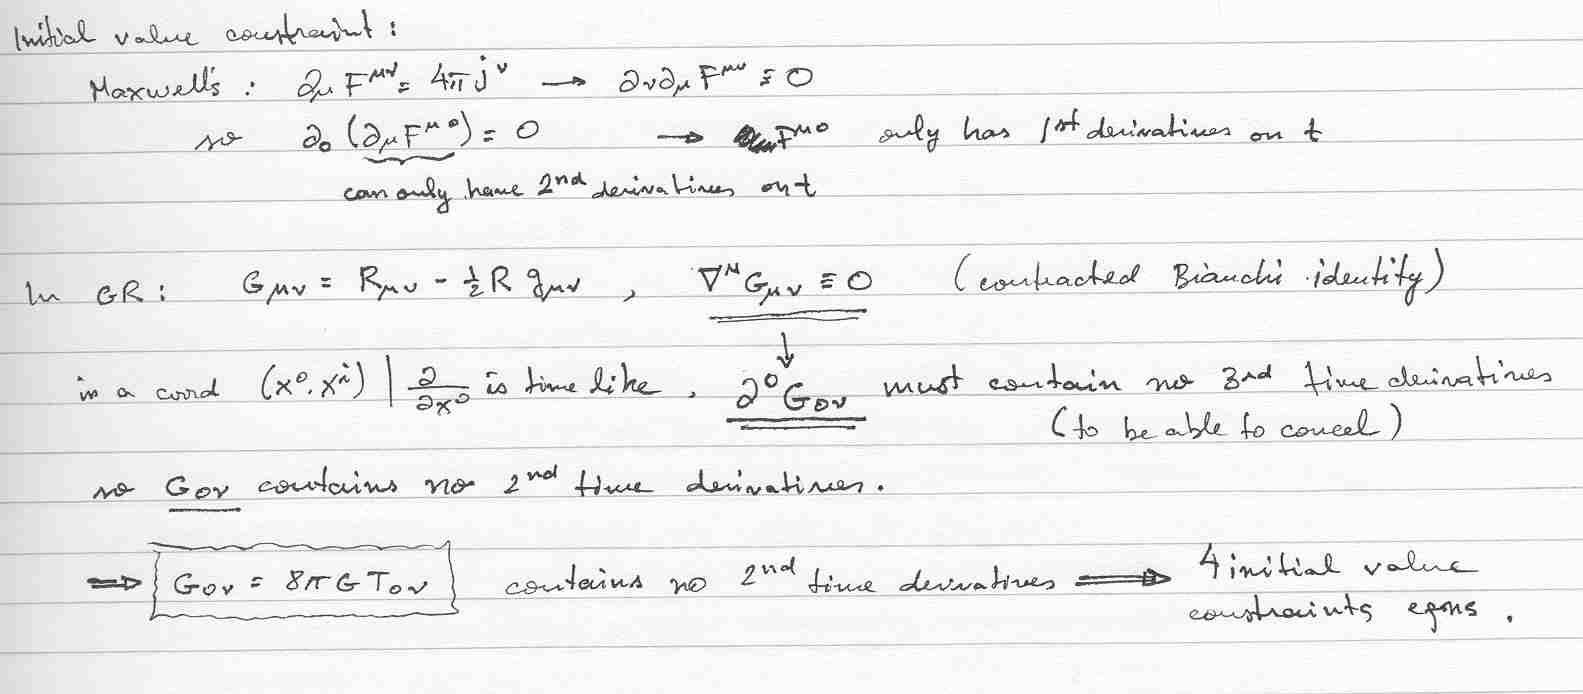 Initial value constraint :
Maxwell's : ∂μ F^μν = 4π j^ν → ∂ν ∂μ F^μν ≡ 0
so ∂₀ (∂μ F^μ0) = 0 → F^μ0 only has 1st derivatives on t
can only have 2nd derivatives on t
In GR : Gμν = Rμν - ½ R gμν , ∇^μ Gμν ≡ 0 (contracted Bianchi identity)
↓
in a coord (x⁰, xⁱ) | ∂/∂x⁰ is time like , ∂⁰G₀ν must contain no 3rd time derivatives
(to be able to cancel)
so G₀ν contains no 2nd time derivatives .
⇒ G₀ν = 8πG T₀ν contains no 2nd time derivatives ⇒ 4 initial value
constraints eqns .